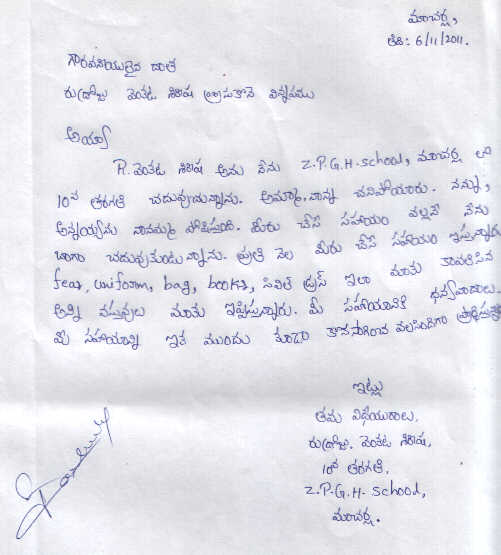 మాచర్ల,
తేది: 6/11/2011.
గౌరవనీయులైన దాత
రుద్రోజు వెంకట శిరిష వ్రాసుకొనె విన్నపము
అయ్యా
R. వెంకట శిరిష అను నేను Z.P.G.H-school, మాచర్ల లో
10వ తరగతి చదువుచున్నాను. అమ్మా, నాన్న చనిపోయారు. నన్ను,
అన్నయ్యను నానమ్మ పోషిస్తుంది. మీరు చేసే సహాయం వల్లనే నేను
బాగా చదువుకుంటున్నాను. ప్రతి నెల మీరు చేసే సహాయం ఇస్తున్నారు
fees, uniform, bag, books, సివిల్ డ్రస్ ఇలా మాకు కావలసిన
అన్ని వస్తువులు మాకు ఇప్పిస్తున్నారు. మీ సహాయానికి ధన్యవాదాలు.
మీ సహాయాన్ని ఇక ముందు కూడా కొనసాగించ వలసిందిగా ప్రార్థిస్తున్నాను
ఇట్లు
తమ విధేయురాలు,
రుద్రోజు. వెంకట శిరిష,
10వ తరగతి,
Z.P.G.H- school,
మాచర్ల.